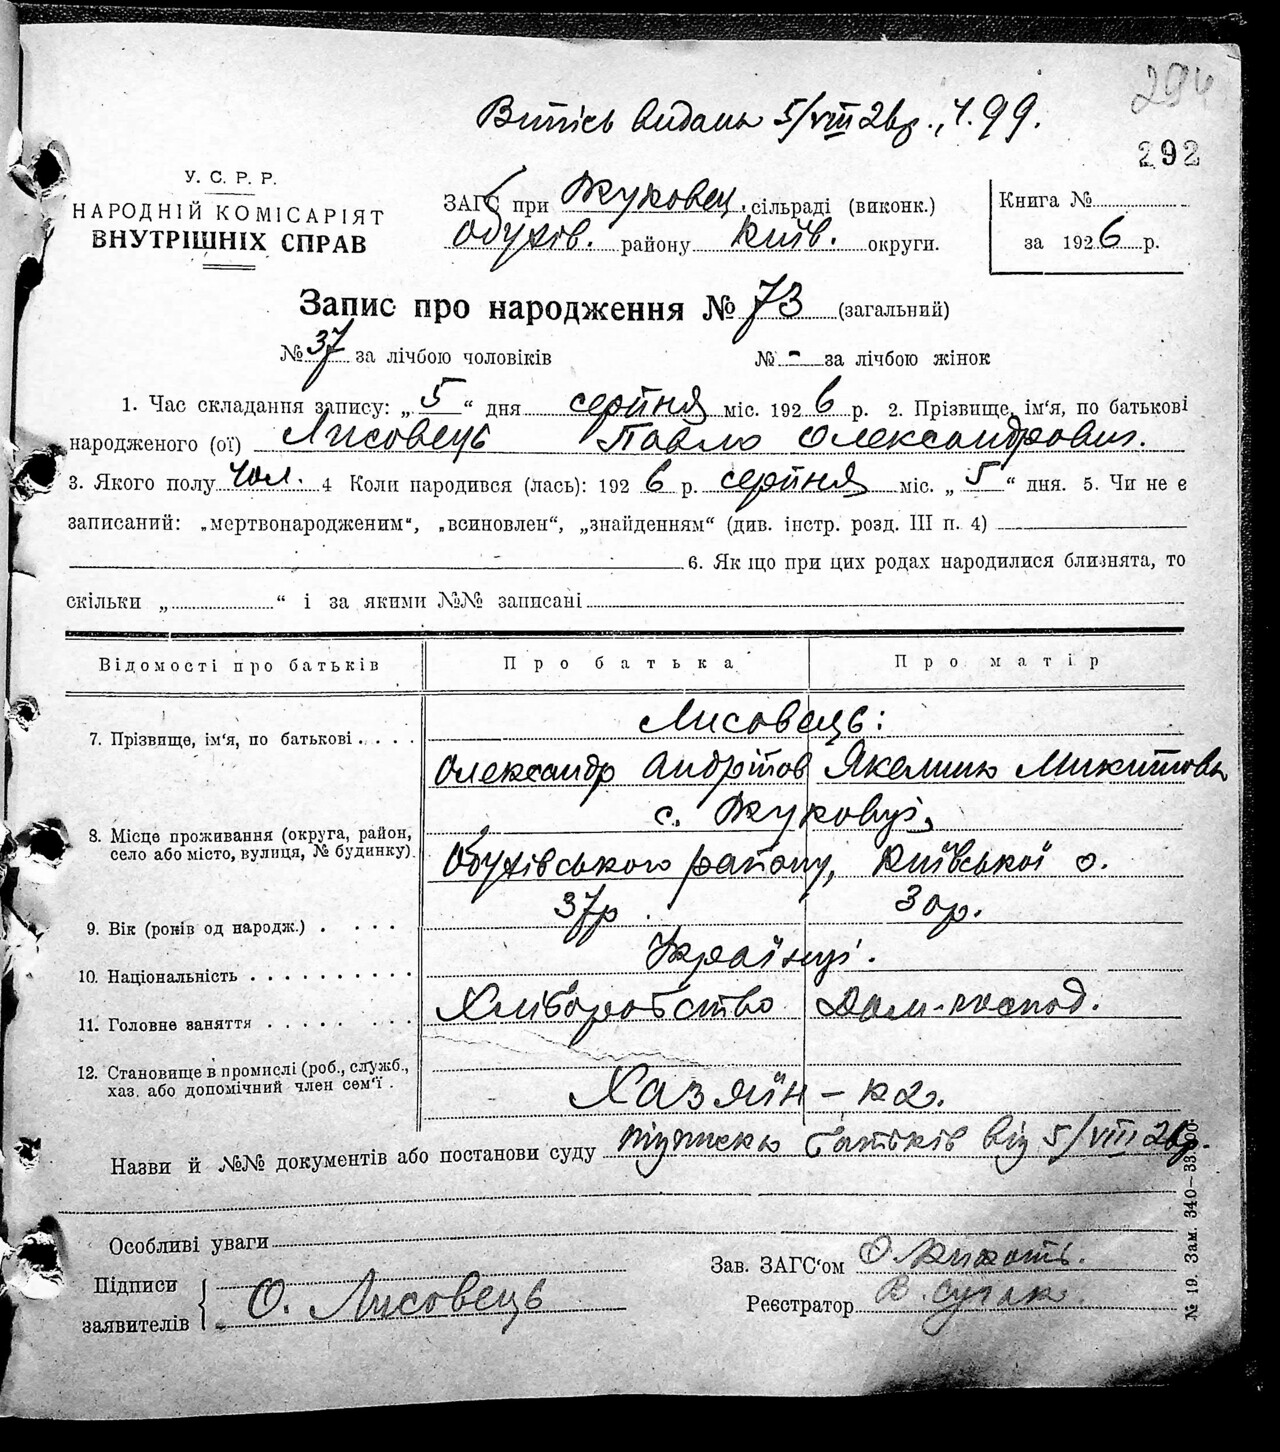 294
Витісь видань 5/VIII 26р., ч. 99.
292
У. С. Р. Р.
НАРОДНІЙ КОМІСАРІЯТ
ВНУТРІШНІХ СПРАВ
ЗАГС при Жуковец. сільраді (виконк.)
Обухів. району Київ. округи.
Книга №
за 1926 р.
Запис про народження № 73 (загальний)
№ 37 за лічбою чоловіків № - за лічбою жінок
1. Час складання запису: „5“ дня серпня міс. 1926 р. 2. Прізвище, ім'я, по батькові
народженого (ої) Лисовець Павло Олександрович.
3. Якого полу чол. 4 Коли народився (лась): 1926 р. серпня міс. „5“ дня. 5. Чи не є
записаний: „мертвонародженим“, „всиновлен“, „знайденням“ (див. інстр. розд. III п. 4)
6. Як що при цих родах народилися близнята, то
скільки „ “ і за якими №№ записані
Відомості про батьків Про батька Про матір
7. Прізвище, ім'я, по батькові Лисовець:
Олександр Андрітов Якелино Микитовн
8. Місце проживання (округа, район, село або місто, вулиця, № будинку) с. Жуковці,
Обухівського району, Київської о.
9. Вік (років од народж.) 37р. 30р.
10. Національність Українці.
11. Головне заняття Хліборобство Дом-господ.
12. Становище в промислі (роб., служб.,
хаз. або допомічний член сем'ї Хазяїн - к2.
Назви й №№ документів або постанови суду батьків від 5/VIII 26р.
Особливі уваги
Підписи
заявителів О. Лисовець
Зав. ЗАГС'ом
Реєстратор В. Сугак
№ 19. Зам. 340—33.000